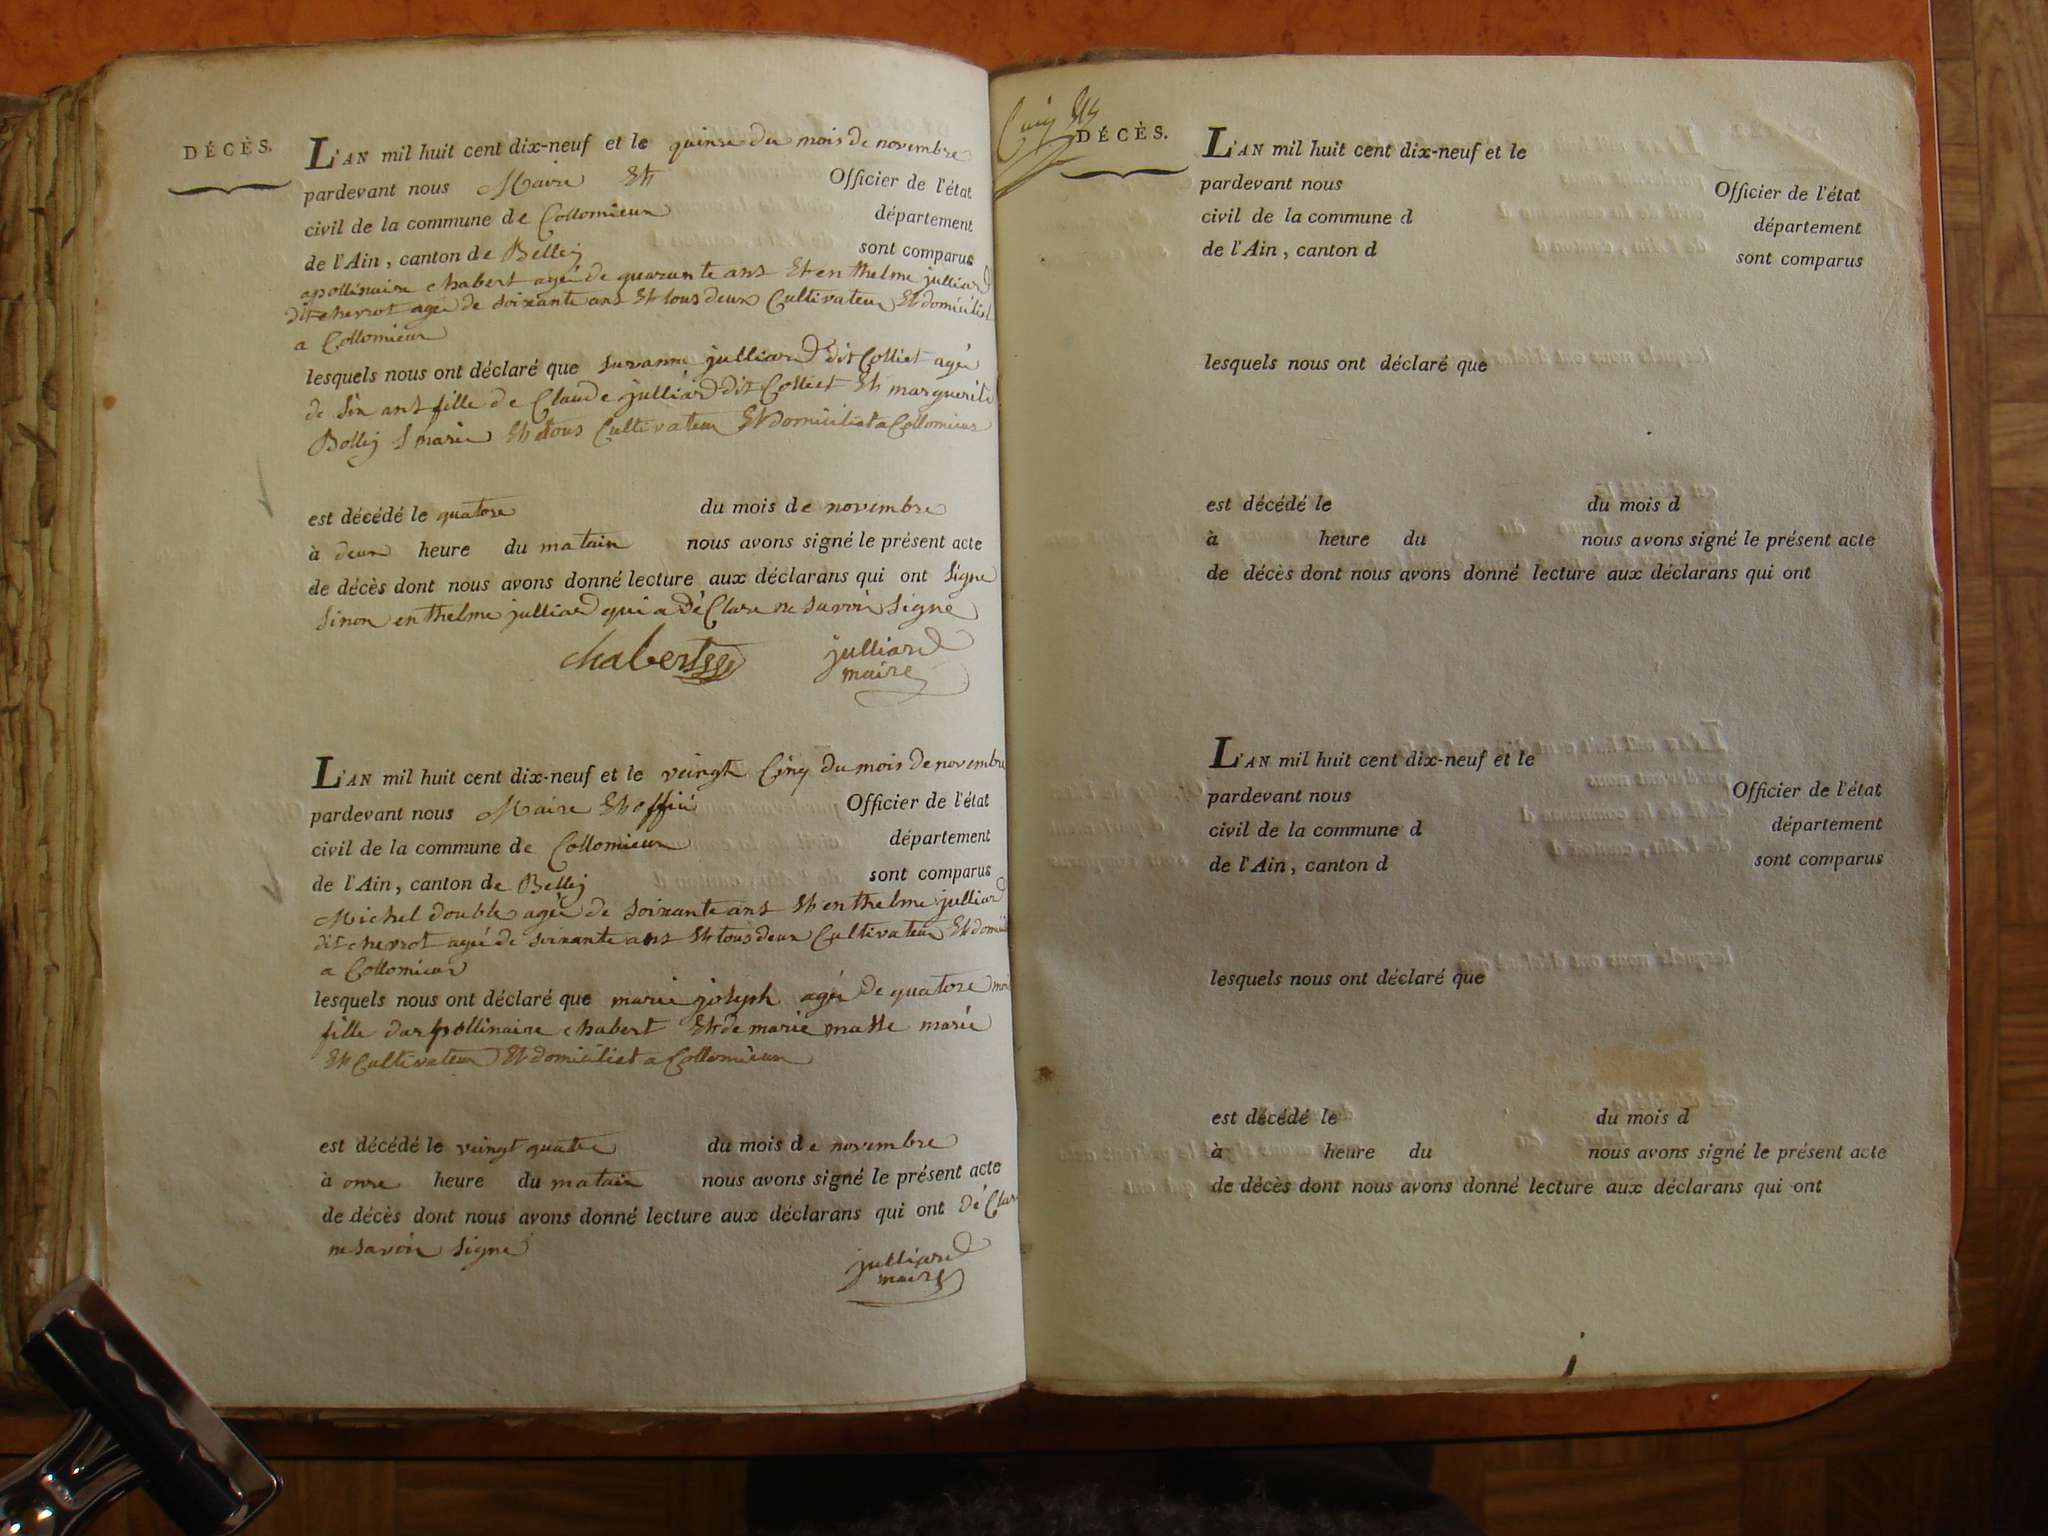 DÉCÈS.
L'AN mil huit cent dix-neuf et le quinse du mois de novembre
pardevant nous Maire Et Officier de l'état
civil de la commune de Collomieux département
de l'Ain, canton de Belley sont comparus
apollinaire chabert agée de quarante ans Et enthelme julliard
dit chevrot agée de soixante ans Et tous deux Cultivateur Et domiciliet
a Collomieux
lesquels nous ont déclaré que suzanne julliard dit Colliet agée
de six ans fille de Claude julliard dit Colliet Et marguerite
Bolley marié Et tous Cultivateur Et domiciliet a Collomieux
est décédé le quatorse du mois de novembre
à deux heure du matain nous avons signé le présent acte
de décès dont nous avons donné lecture aux déclarans qui ont signe
sinon enthelme julliard qui a déClare ne savoir signe
chabert julliard
maire
L'AN mil huit cent dix-neuf et le veingt Cinq du mois de novembre
pardevant nous Maire Et offici Officier de l'état
civil de la commune de Collomieux département
de l'Ain, canton de Belley sont comparus
Michel double agée de soixante ans Et enthelme julliard
dit chevrot agée de soixante ans Et tous deux Cultivateur Et domicil
a Collomieux
lesquels nous ont déclaré que marie joseph agée de quatorse mois
fille d'appollinaire chabert Et de marie masse marié
Et Cultivateur Et domiciliet a Collomieux
est décédé le veingt quatre du mois de novembre
à onse heure du matain nous avons signé le présent acte
de décès dont nous avons donné lecture aux déclarans qui ont déClare
ne savoir signé
julliard
maire
DÉCÈS.
L'AN mil huit cent dix-neuf et le
pardevant nous Officier de l'état
civil de la commune d département
de l'Ain, canton d sont comparus
lesquels nous ont déclaré que
est décédé le du mois d
à heure du nous avons signé le présent acte
de décès dont nous avons donné lecture aux déclarans qui ont
L'AN mil huit cent dix-neuf et le
pardevant nous Officier de l'état
civil de la commune d département
de l'Ain, canton d sont comparus
lesquels nous ont déclaré que
est décédé le du mois d
à heure du nous avons signé le présent acte
de décès dont nous avons donné lecture aux déclarans qui ont